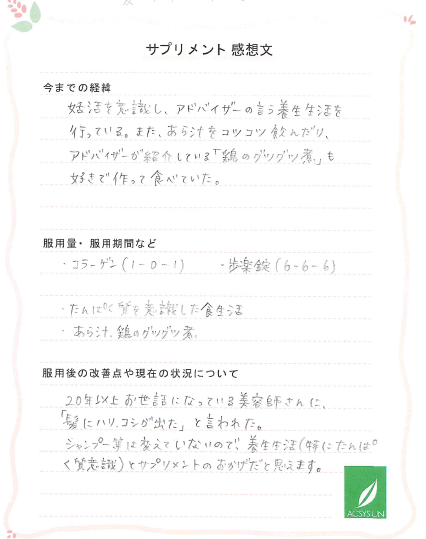 サプリメント 感想文
今までの経緯
妊活を意識し、アドバイザーの言う養生生活を
行っている。また、あら汁をコツコツ飲んだり、
アドバイザーが紹介している「鶏のグツグツ煮」も
好きで作って食べていた。
服用量・服用期間など
・コラーゲン(1-0-1) ・歩楽錠(6-6-6)
・たんぱく質を意識した食生活
・あら汁、鶏のグツグツ煮
服用後の改善点や現在の状況について
20年以上お世話になっている美容師さんに、
「髪にハリ、コシが出た」と言われた。
シャンプー等は変えていないので、養生生活(特にたんぱ
く質意識)とサプリメントのおかげだと思えます。
ACSYSUN